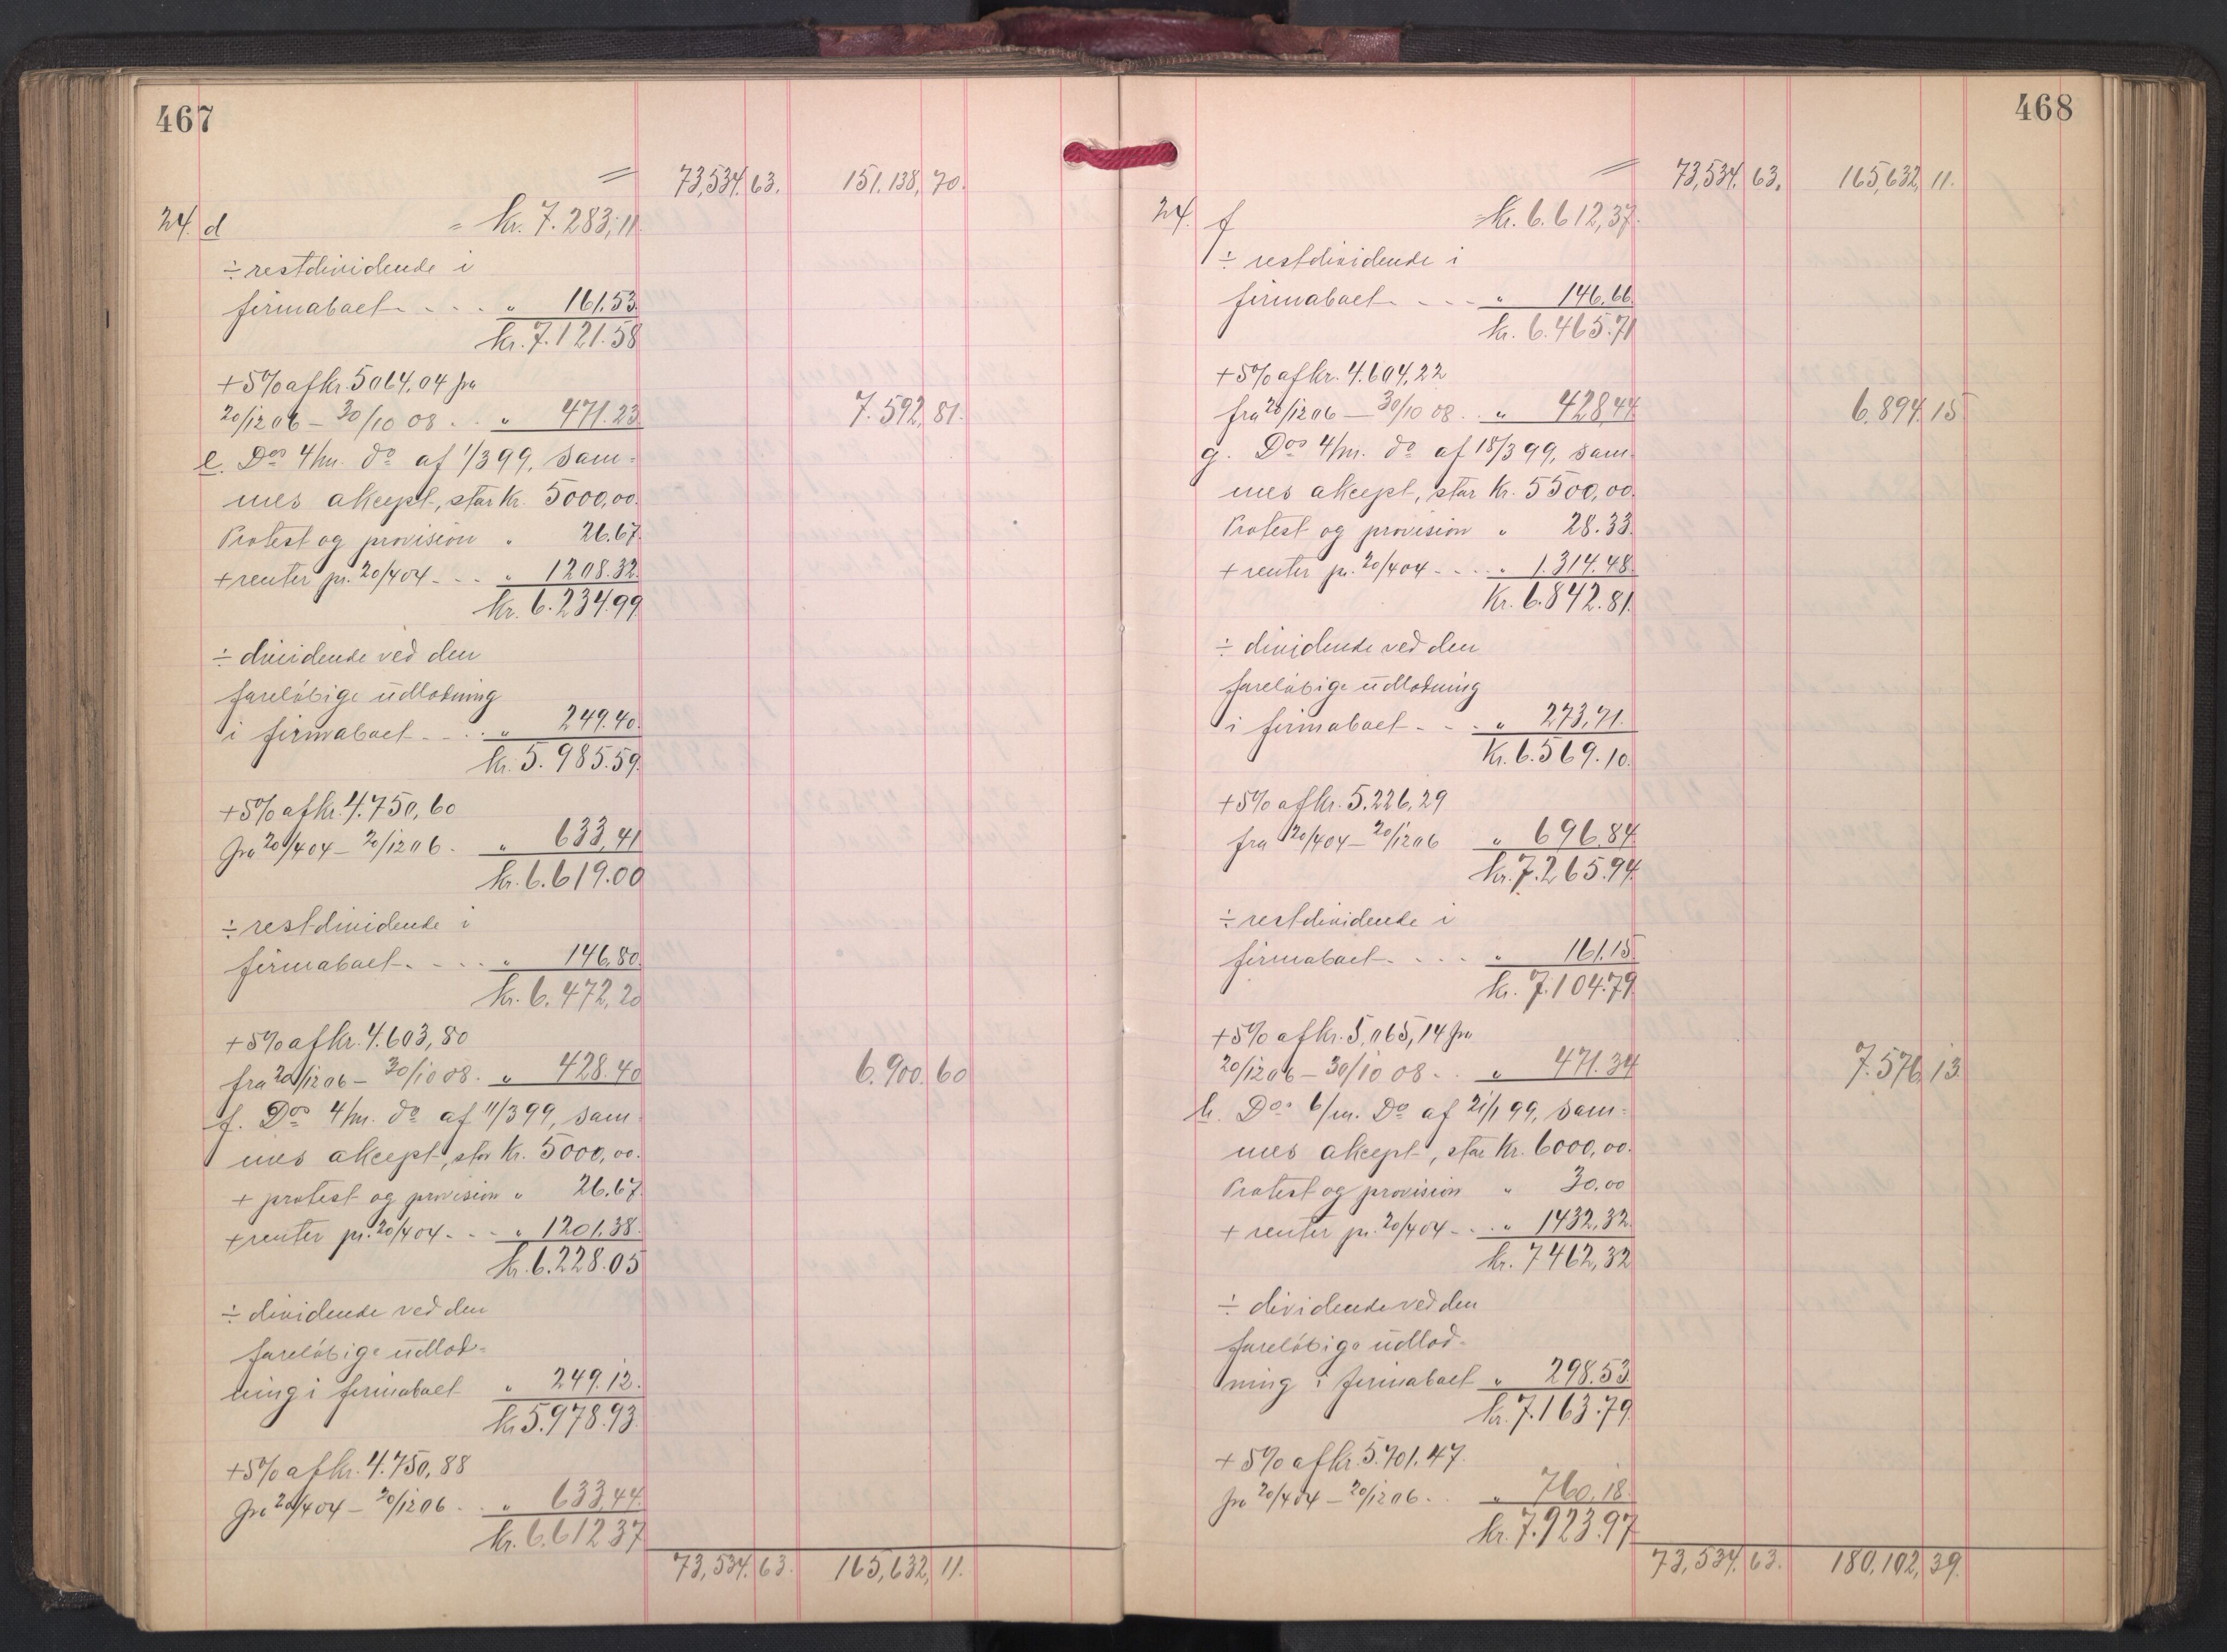 467
73,534. 63. 151.138, 70.
24. d = kr. 7.283,11
÷ restdividende i
firmaboet - - - " 161.53.
kr. 7.121.58
+ 5% af kr. 5064,04 fra
20/12 06 - 30/10 08 . . " 471.23. 7.592, 81.
e. Dos 4/m. do af 1/3 99, sam-
mes akcept, stor Kr. 5000,00.
Protest og provision " 26.67.
+ renter pr. 20/4 04 - - - " 1208.32.
kr. 6.234.99
÷ dividende ved den
foreløbige udlodning
i firmaboet - - . . " 249.40.
kr. 5.985.59.
+ 5% af kr. 4.750,60
fra 20/4 04 - 20/12 06 . " 633,41
kr. 6.619.00
÷ restdividende i
firmaboet. - - . . " 146.80.
kr. 6.472,20
+ 5% af kr. 4.603,80
fra 20/12 06 - 30/10 08 . " 428.40 6.900. 60
f. Dos 4/m. do af 11/3 99, sam-
mes akcept, stor Kr. 5000,00.
+ protest og provision " 26.67.
+ renter pr. 20/4 04 - - - " 1201.38.
kr. 6.228.05
÷ dividende ved den
foreløbige udlod-
ning i firmaboet " 249.12.
kr. 5.978.93.
+ 5% af kr. 4.750,88
fra 20/4 04 - 20/12 06 . . " 633,44.
kr. 6.612 37
73,534. 63. 165,632, 11.
468
73,534. 63. 165,632, 11.
24. f = kr. 6.612,37.
÷ restdividende i
firmaboet - - - - " 146.66.
kr. 6.465.71
+ 5% af kr. 4.604,22
fra 20/12 06 - 30/10 08 . . " 428,44 6.894. 15
g. Dos 4/m. do af 18/3 99, sam-
mes akcept, stor kr. 5500,00.
Protest og provision " 28.33.
+ renter pr. 20/4 04 - - . . " 1.314.48.
Kr. 6.842.81.
÷ dividende ved den
foreløbige udlodning
i firmaboet - - . . " 273,71.
Kr. 6.569.10.
+ 5% af kr. 5.226,29
fra 20/4 04 - 20/12 06 " 696,84.
kr. 7.265.94.
÷ restdividende i
firmaboet - . . . " 161.15.
kr. 7.104.79.
+ 5% af kr. 5,065,14 fra
20/12 06 - 30/10 08 - . " 471.34 7.576, 13.
h. Dos 6/m. Do af 21/1 99, sam-
mes akcept, stor Kr. 6000,00.
Protest og provision " 30.00
+ renter pr. 20/4 04 - . . " 1432,32.
kr. 7462,32
÷ dividende ved den
foreløbige udlod-
ning i firmaboet " 298.53.
kr. 7.163.79.
+ 5% af kr. 5.701.47.
fra 20/4 04 - 20/12 06 . . " 760,18.
kr. 7.923.97
73,534. 63. 180,102, 39.